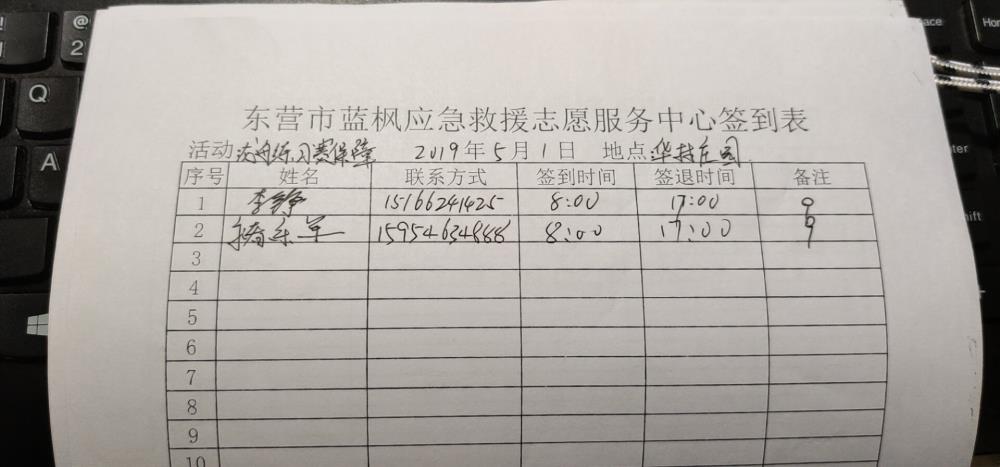 东营市蓝枫应急救援志愿服务中心签到表
活动 练习赛保障 2019年5月1日 地点 华林庄园
序号 姓名 联系方式 签到时间 签退时间 备注
1 李静 15166241425 8:00 17:00 9
2 15954634888 8:00 17:00 9
3
4
5
6
7
8
9
10
@
2
Q
A
ace
Hom
ter
ift